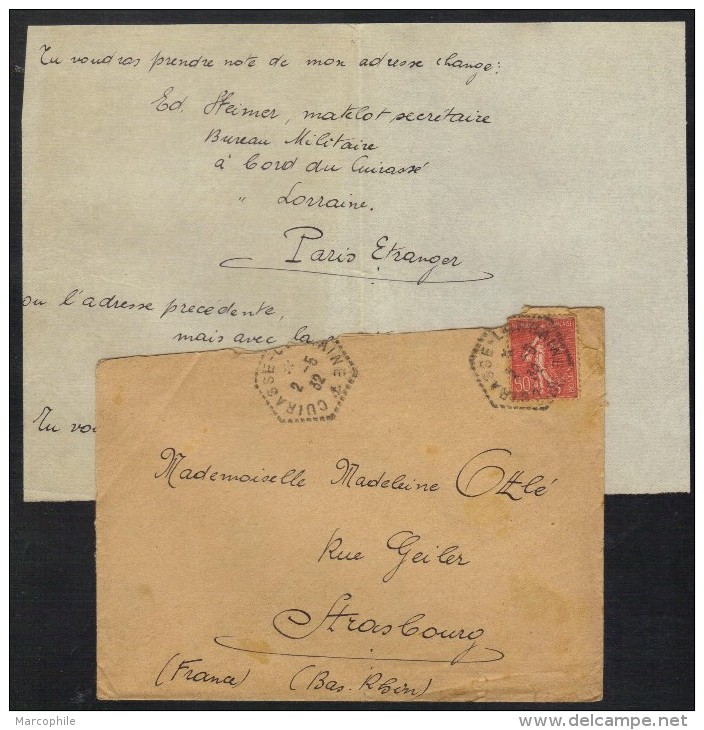 Tu voudras prendre note de mon adresse change:
Ed. Steimer, matelot secrétaire
Bureau Militaire
à bord du Cuirassé
" Lorraine.
Paris Etranger
ou l'adresse precedente,
mais avec la
Tu vou
CUIRASSE-L AINE
2-5
32
50
CUIRASSE-L
Mademoiselle Madeleine Ottlé
Rue Geiler
Strasbourg
(France) (Bas. Rhin)
Marcophile
delcampe.net